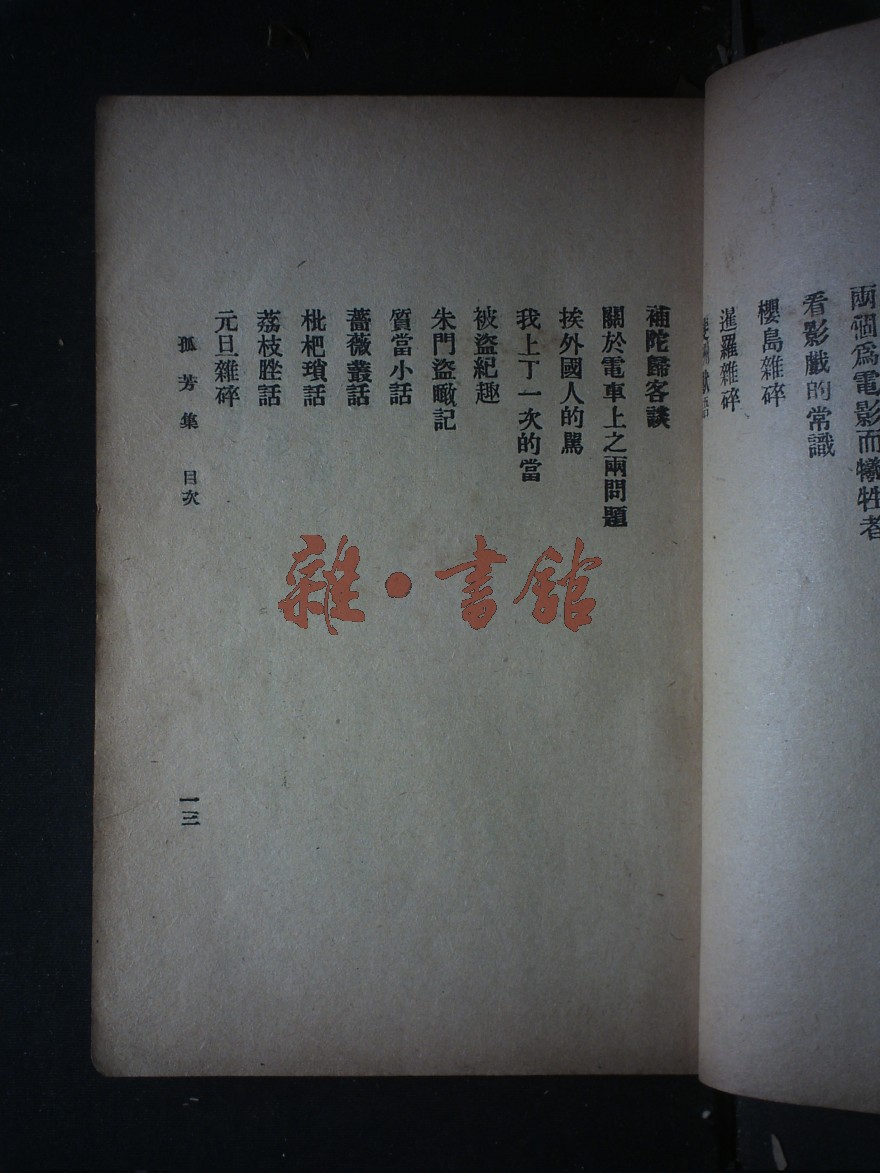 兩個爲電影而犧牲者
看影戲的常識
櫻島雜碎
暹羅雜碎
補陀歸客談
關於電車上之兩問題
挨外國人的駡
我上了一次的當
被盜紀趣
朱門盜瞰記
質當小話
薔薇叢話
枇杷瑣話
荔枝脞話
元旦雜碎
孤芳集 目次
一三
雜·書館